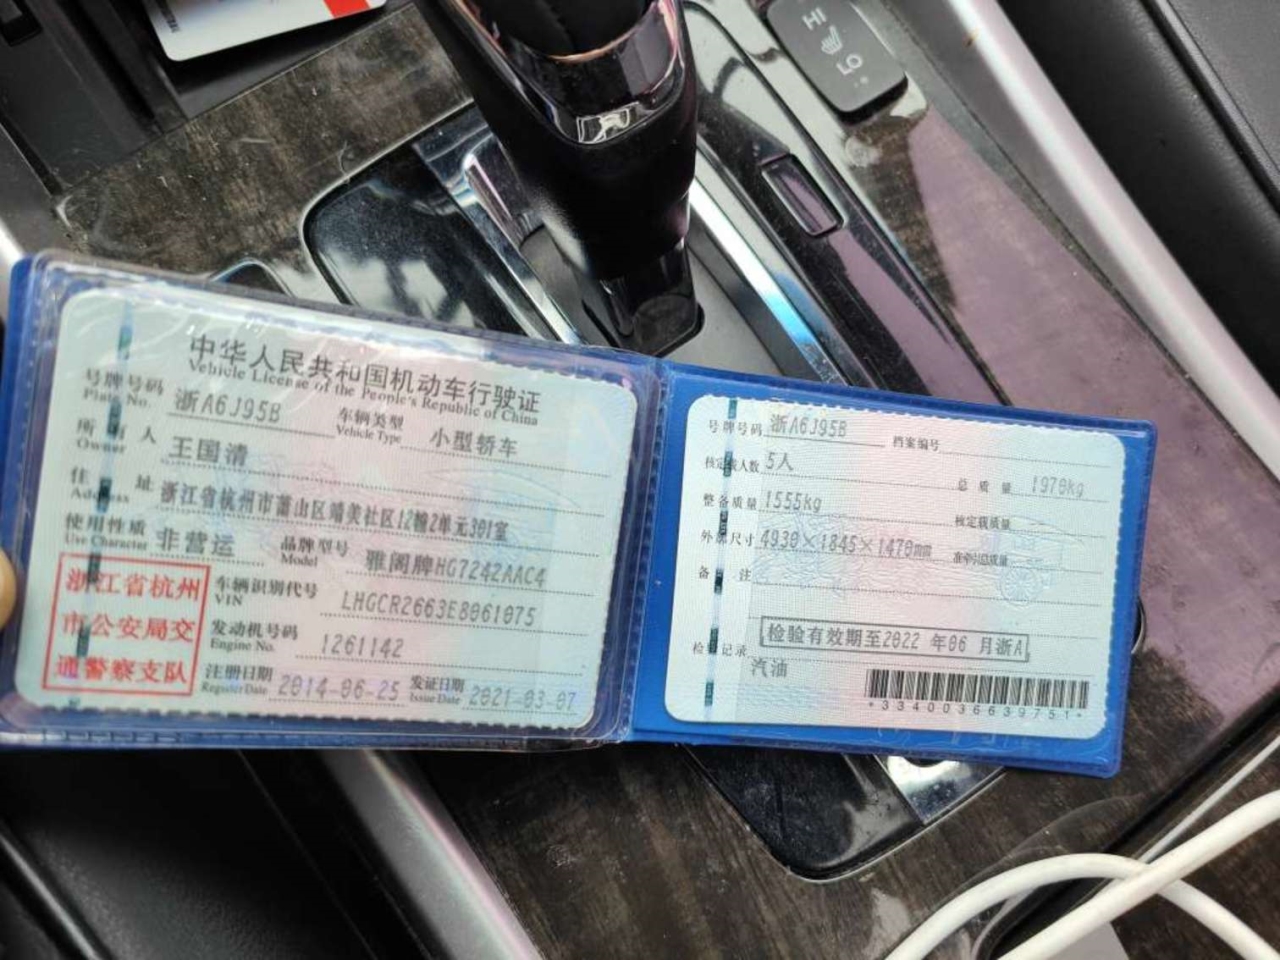 HI
LO
中华人民共和国机动车行驶证
Vehicle License of the People's Republic of China
号牌号码 浙A6J95B 车辆类型 小型轿车
Plate No. Vehicle Type
所有人 王国清
Owner
住址 浙江省杭州市萧山区靖美社区12幢2单元301室
Address
使用性质 非营运 品牌型号 雅阁牌HG7242AAC4
Use Character Model
车辆识别代号 LHGCR2663E8061075
VIN
发动机号码 1261142
Engine No.
注册日期 2014-06-25 发证日期 2021-03-07
Register Date Issue Date
浙江省杭州
市公安局交
通警察支队
号牌号码 浙A6J95B 档案编号
核定载人数 5人 总质量 1970kg
整备质量 1555kg 核定载质量
外廓尺寸 4930×1845×1470mm 准牵引总质量
备注
检验有效期至2022年06月浙A
检验记录
汽油
*3340036639751*